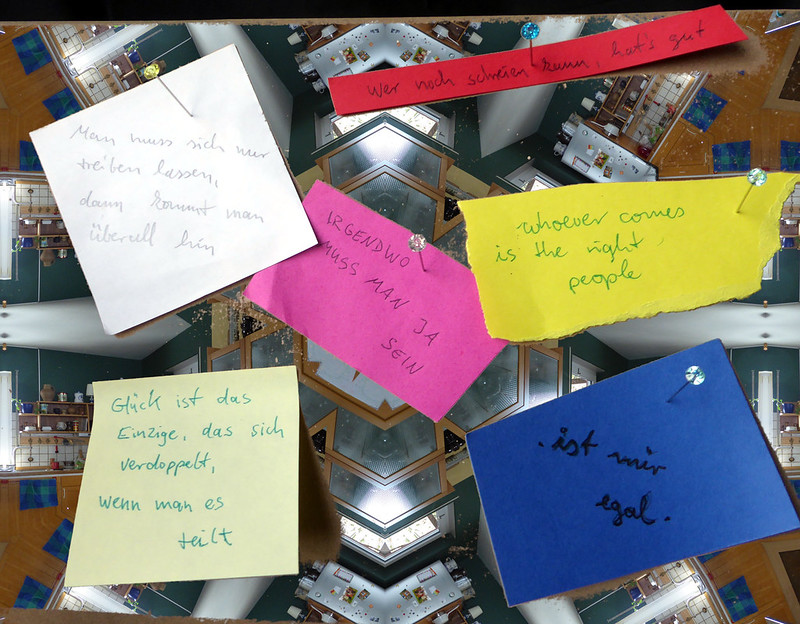 wer noch schreien kann, hat's gut
Man muss sich nur
treiben lassen,
dann kommt man
überall hin
IRGENDWO
MUSS MAN JA
SEIN
whoever comes
is the right
people
Glück ist das
Einzige, das sich
verdoppelt,
wenn man es
teilt
. ist mir
egal.